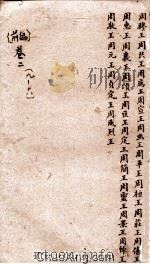 周穆王周共王周厲王周宣王周幽王周平王周桓王周莊王周僖王
周惠王周襄王周頃王周匡王周定王周簡王周靈王周景王周悼王
周敬王周元王周貞定王周威烈王
前編
卷二